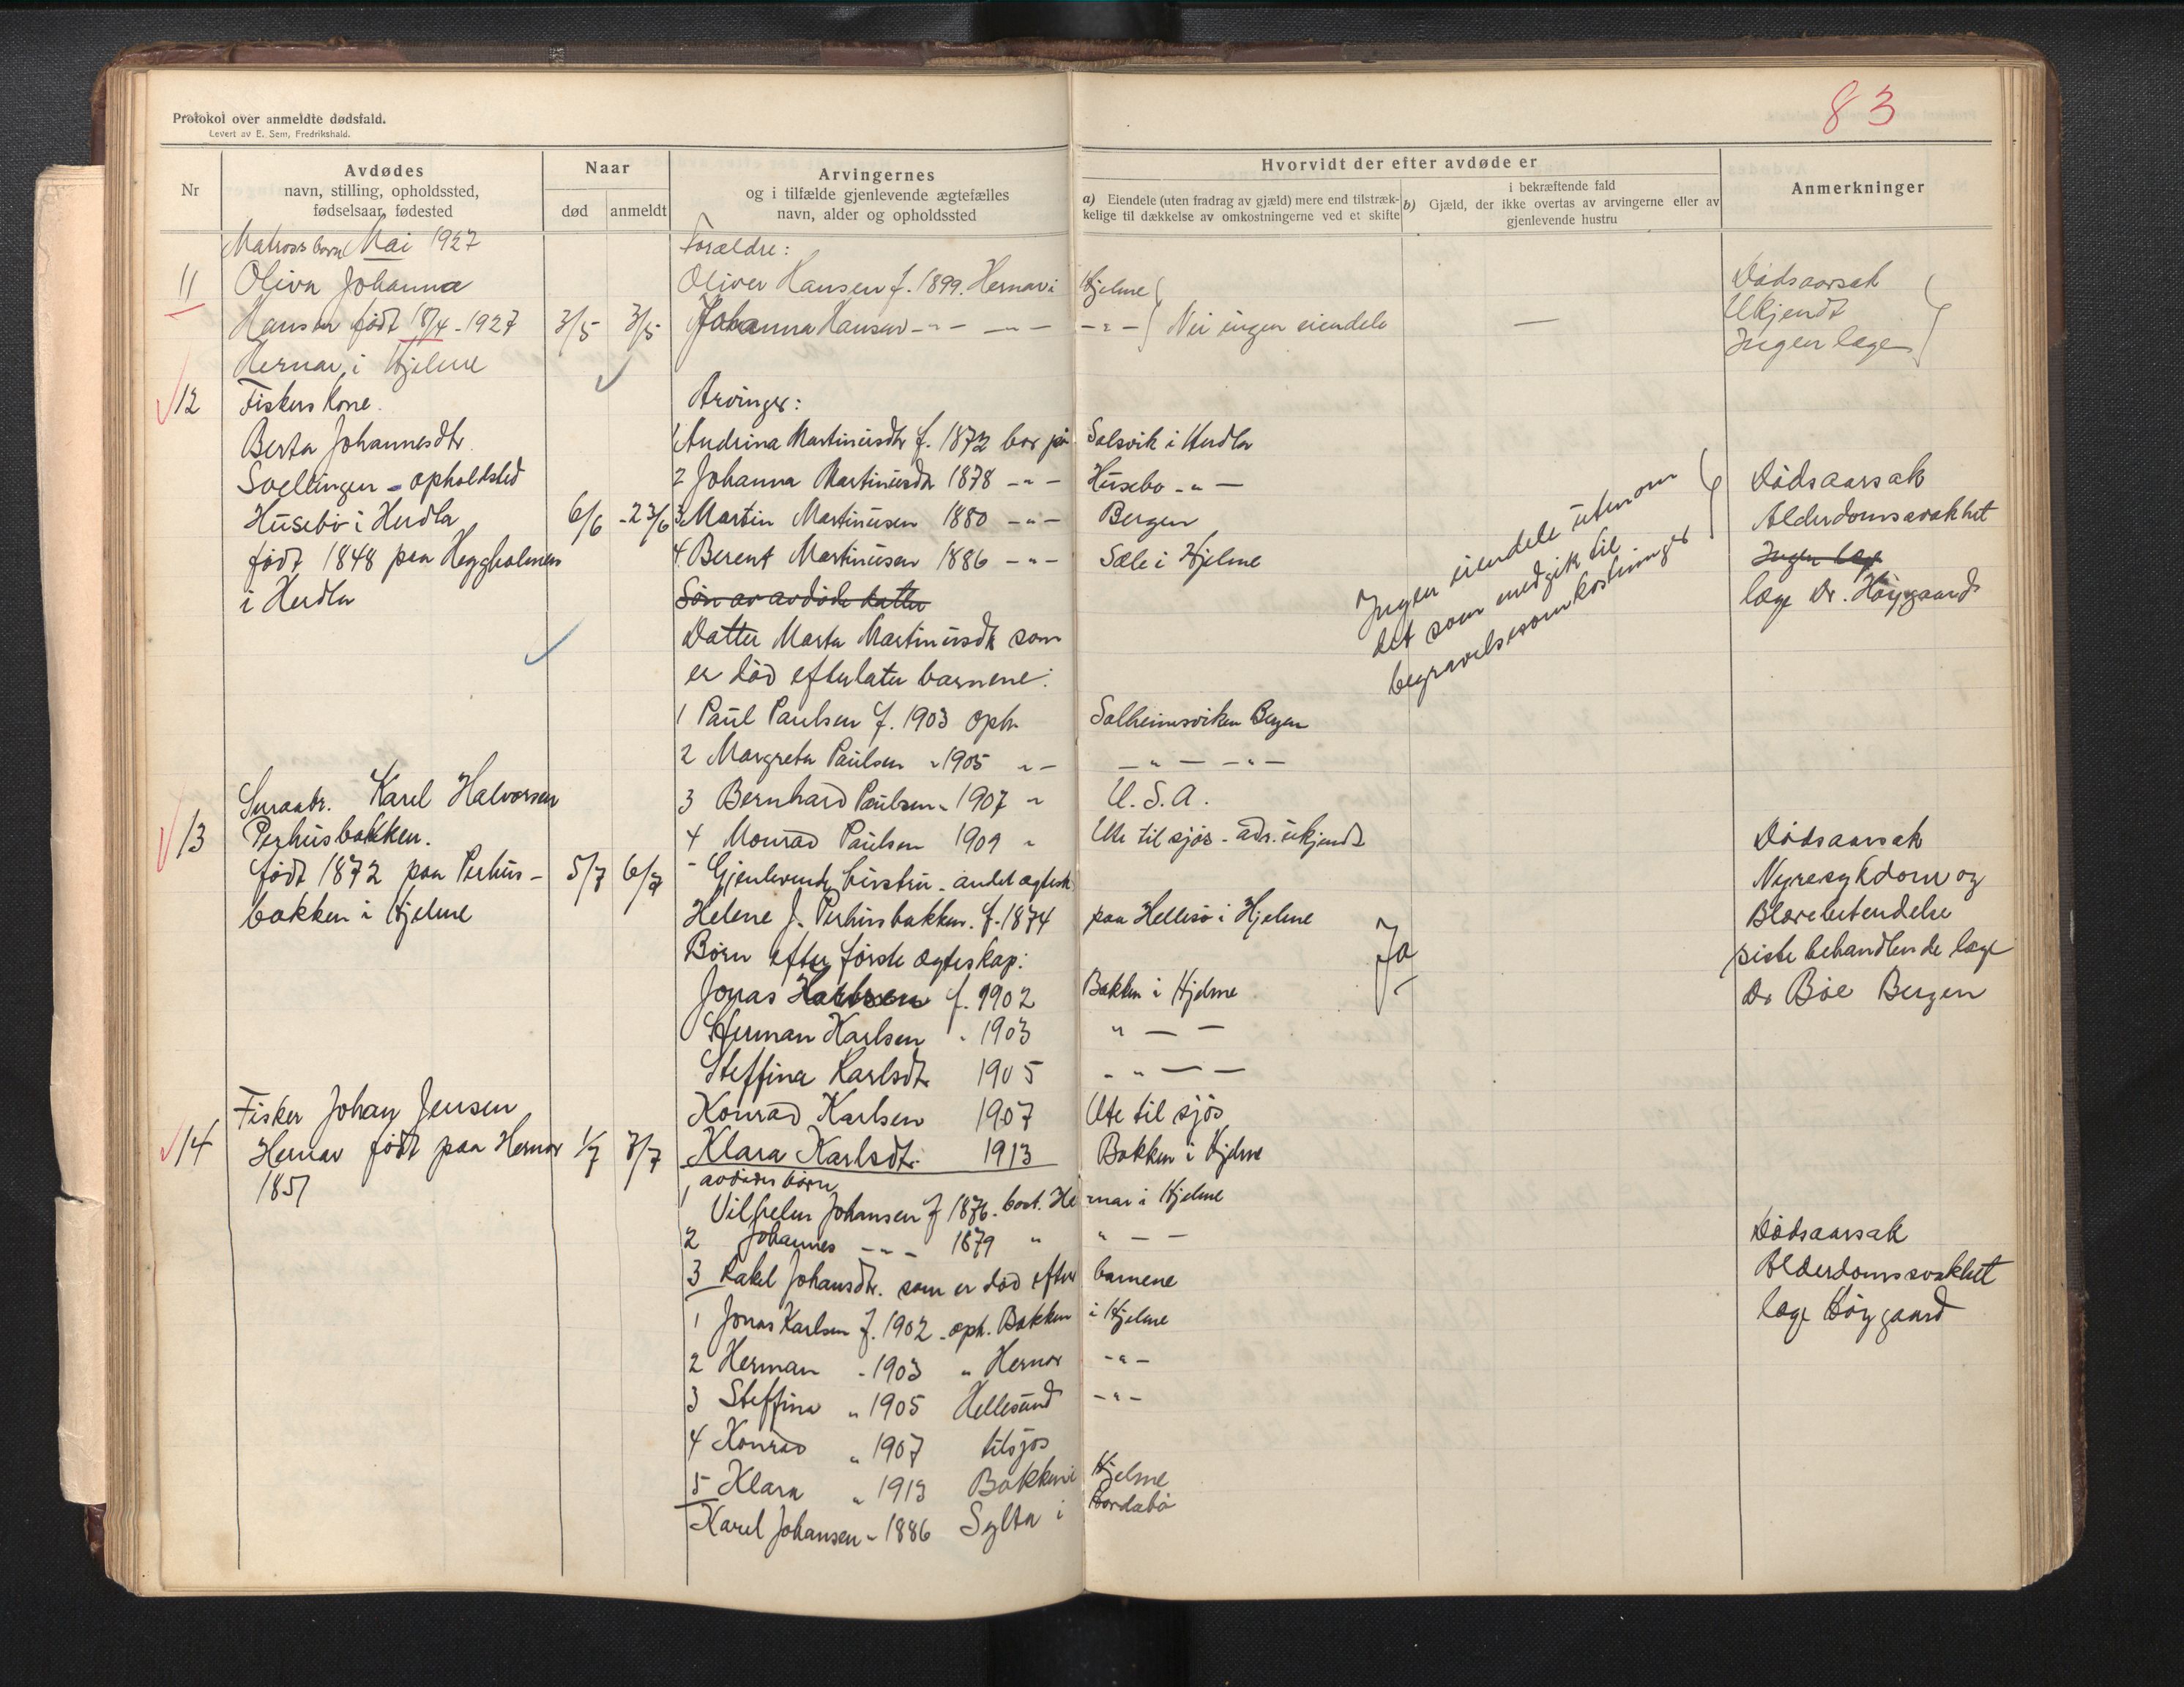 83
Protokol over anmeldte dødsfald.
Levert av E. Sem, Fredrikshald.
Nr
Avdødes
navn, stilling, opholdssted,
fødselsaar, fødested
Naar
død
anmeldt
Arvingernes
og i tilfælde gjenlevende ægtefælles
navn, alder og opholdssted
Hvorvidt der efter avdøde er
a) Eiendele (uten fradrag av gjæld) mere end tilstræk-
kelige til dækkelse av omkostningerne ved et skifte
i bekræftende fald
b) Gjæld, der ikke overtas av arvingerne eller av
gjenlevende hustru
Anmerkninger
Matros barn Mai 1927
11 Oliva Johanna
Hansen født 18/4-1927 3/5 3/5
Hernar i Hjelme
Forældre:
Oliver Hansen f. 1899. Hernar i Hjelme
Johanna Hansen -"- -"- -"- Nei ingen eiendele —
Dødsaarsak
Ukjendt
Ingen læge
12 Fiskers kone.
Berta Johannesdtr.
Soeltingen - opholdsted
Husebø i Herdla 6/6 -23/6
født 1848 paa Heggholmen
i Herdla
Arvinger:
1 Andrina Martinusdtr f. 1872 bor på Solsvik i Herdla
2 Johanna Martinusdtr 1878 -"- Husebø -"-
3 Martin Martinusen 1880 -"- Bergen
4. Berent Martinusen 1886 -"- Sæle i Hjelme
Søn av avdøde datter
Datter Marta Martinusdtr som
er død efterlater barnene:
1 Paul Paulsen f. 1903 oph. Solheimsviken Bergen
2 Margreta Paulsen " 1905 "- -"- -"-
3 Bernhard Paulsen " 1907 " U.S.A.
4 Monrad Paulsen 1909 " Ute til sjøs - adr. ukjendt
Ingen eiendele utenom
det som medgik til
begravelsesomkostninger
Dødsaarsak
Alderdomssvakhet
Ingen læge
læge Dr. Høygaard
13 Smaabr. Karl Halvorsen
Perhusbakken.
født 1872 paa Perhus- 5/7 6/7
bakken i Hjelme
- Gjenlevende hustru - andet ægtesk.
Helene J. Perhusbakken. f. 1874 paa Hellesø i Hjelme
Børn efter første ægteskap:
Jonas Karlsen f. 1902 Bakken i Hjelme
Herman Karlsen " 1903 " — —
Steffina Karlsdtr. 1905 " " — —
Konrad Karlsen 1907 Ute til sjøs
Klara Karlsdtr. 1913 Bakken i Hjelme
Ja
Dødsaarsak
Nyresykdom og
Blærebetendelse
siste behandlende læge
Dr Bøe Bergen
14 Fisker Johan Jensen
Hernar født paa Hernar 1/7 7/7
1851
avdødes børn
1 Vilhelm Johansen f 1876. bost. Hernar i Hjelme
2 Johannes -"- 1879 " " — —
3 Rakel Johansdtr. som er død efter barnene
1 Jonas Karlsen f. 1902 - oph. Bakken i Hjelme
2 Herman - 1903 " Hernar -"-
3 Steffina " 1905 Hellesund -"-
4 Konrad " 1907 tilsjøs
5 Klara " 1913 Bakken i Hjelme
Karl Johansen " 1886 Sylta i Bordabø
Dødsaarsak
Alderdomssvakhet
læge Høygaard